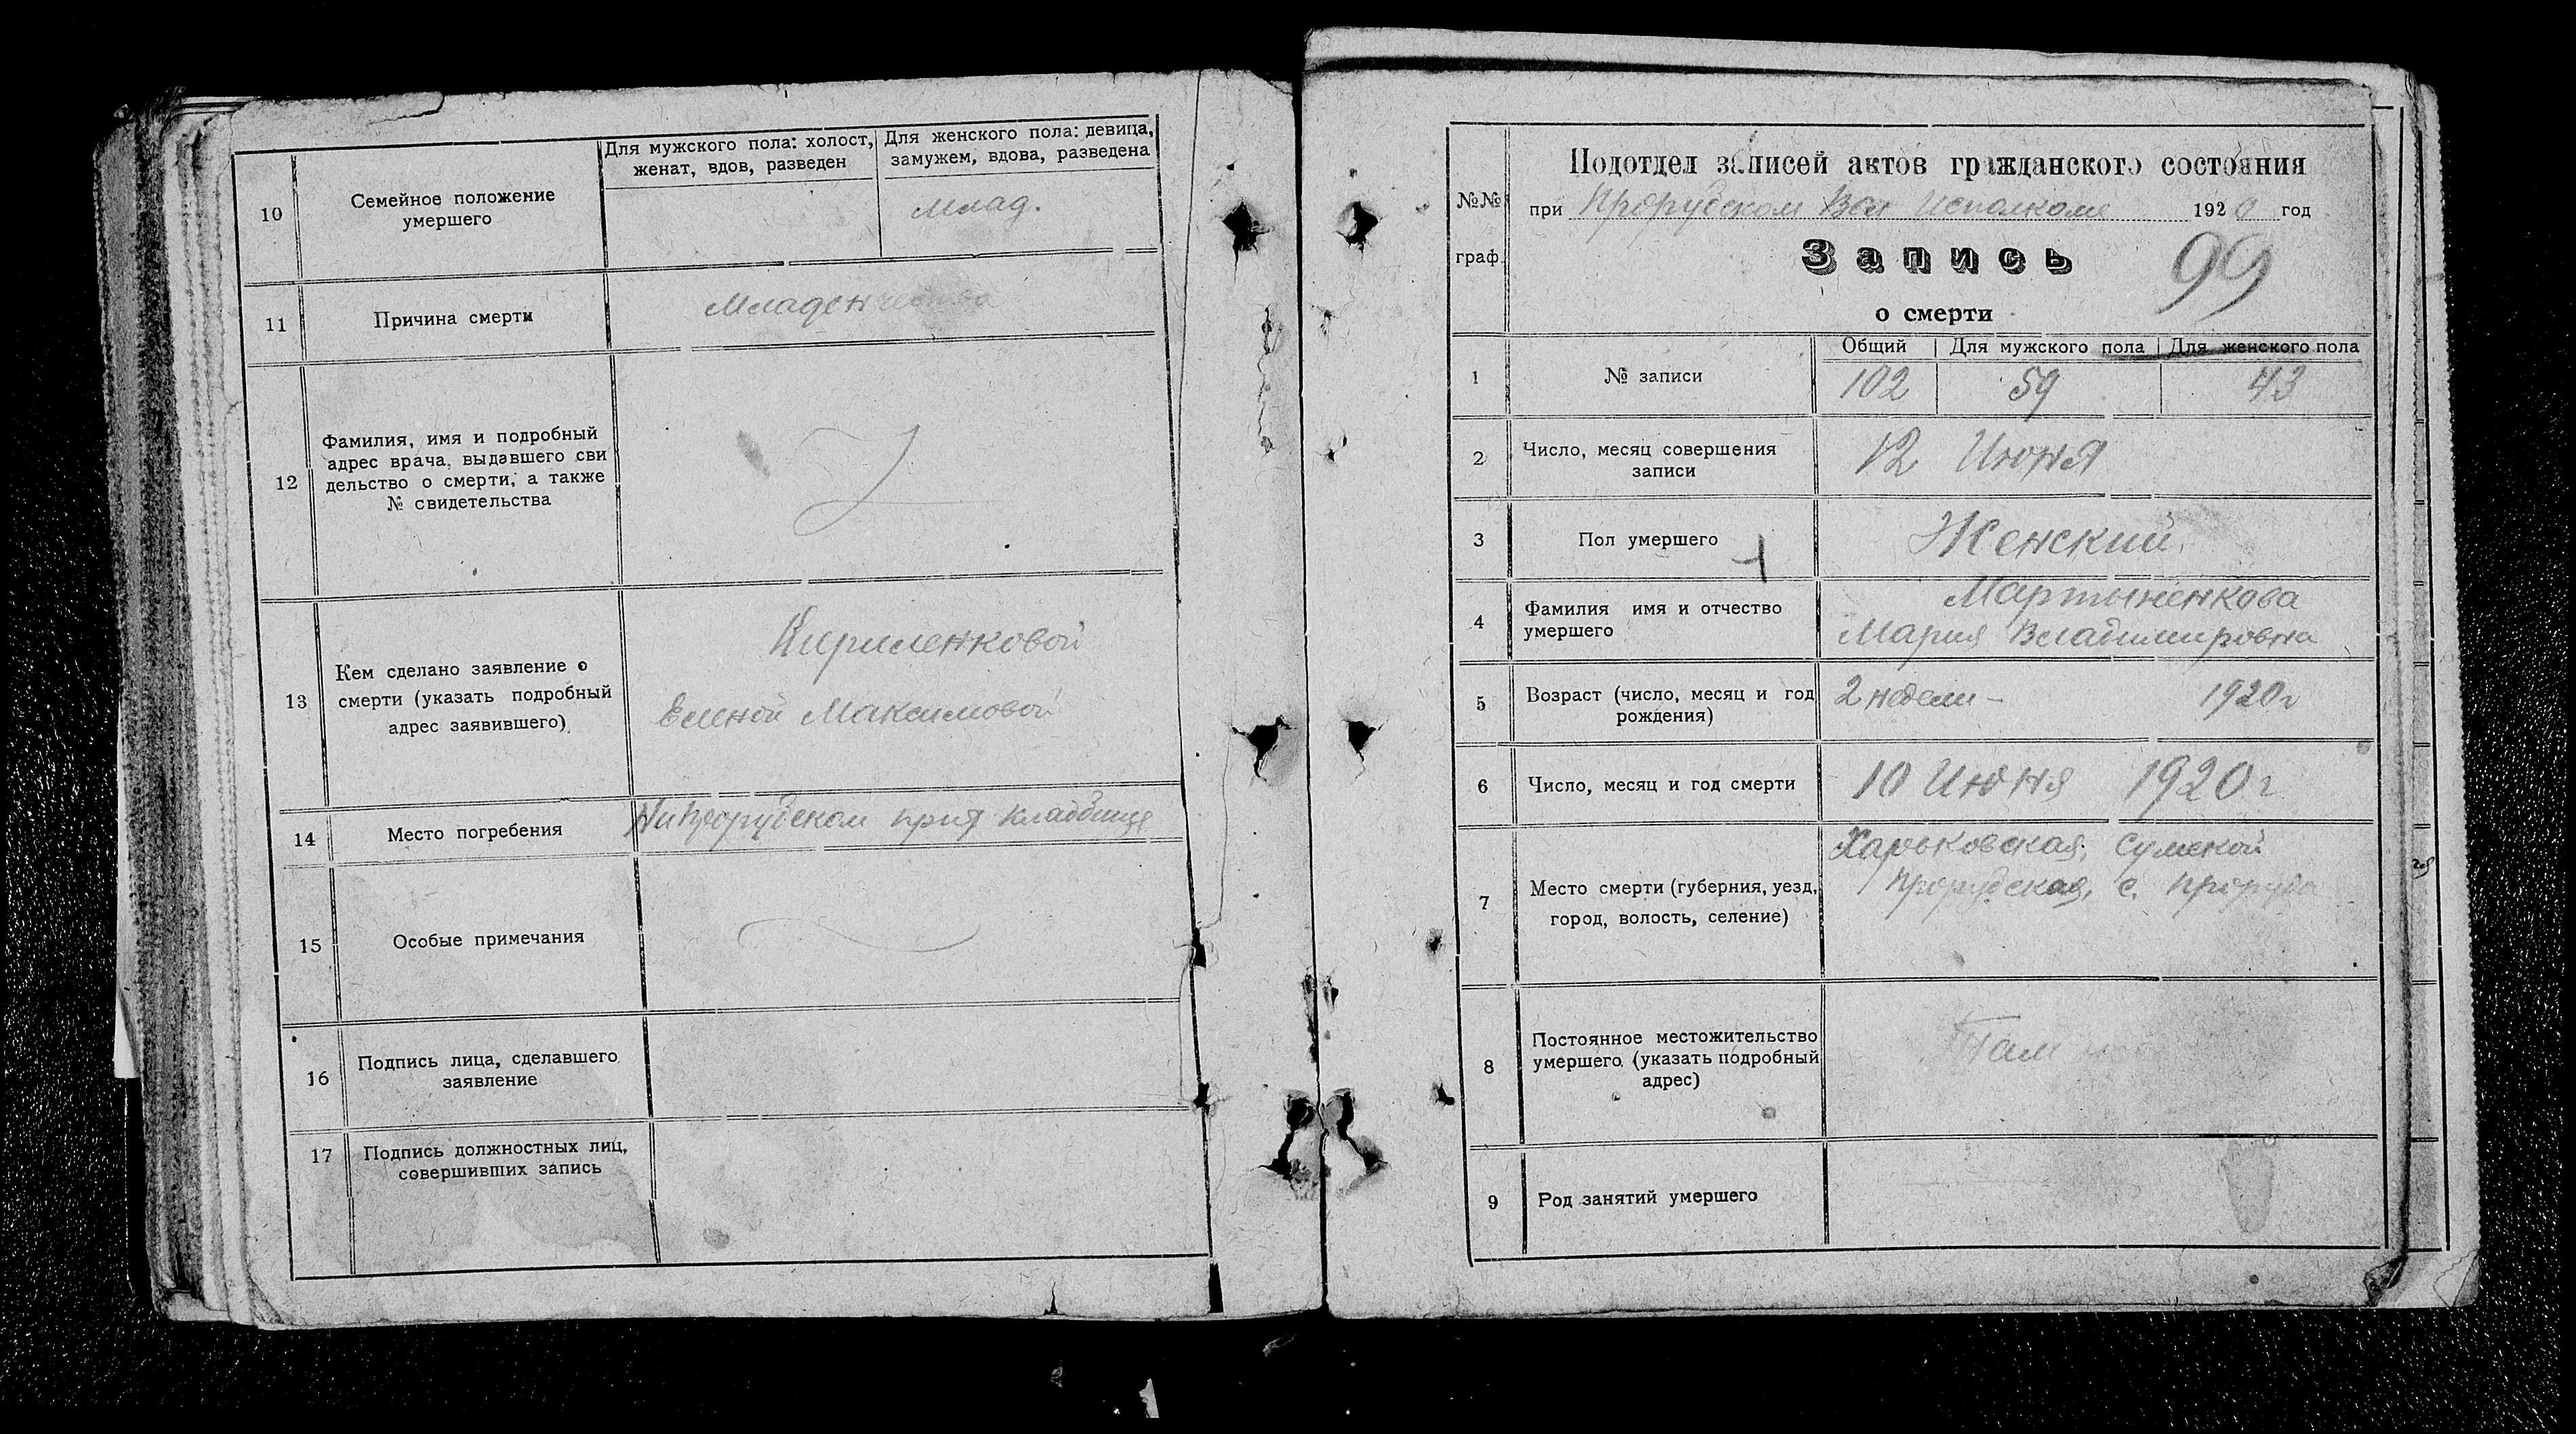 10
Семейное положение
умершего
Для мужского пола: холост,
женат, вдов, разведен
Для женского пола: девица,
замужем, вдова, разведена
Млад.
11
Причина смерти
Младенчество
12
Фамилия, имя и подробный
адрес врача, выдавшего сви
дельство о смерти, а также
№ свидетельства
13
Кем сделано заявление о
смерти (указать подробный
адрес заявившего)
Кириленковой
Еленой Максимовой
14
Место погребения
На Прорубском прих кладбище
15
Особые примечания
16
Подпись лица, сделавшего
заявление
17
Подпись должностных лиц,
совершивших запись
№№
граф.
Подотдел записей актов гражданского состояния
при Прорубском Вол Исполкоме 1920 год
Запись
99
о смерти
1
№ записи
Общий
Для мужского пола
Для женского пола
102
59
43
2
Число, месяц совершения
записи
12 Июня
3
Пол умершего
Женский
4
Фамилия имя и отчество
умершего
Мартыненкова
Мария Владимировна
5
Возраст (число, месяц и год
рождения)
2 недели – 1920 г
6
Число, месяц и год смерти
10 Июня 1920 г
7
Место смерти (губерния, уезд,
город, волость, селение)
Харьковская, Сумской
Прорубская, с. Проруба
8
Постоянное местожительство
умершего (указать подробный
адрес)
Там
9
Род занятий умершего